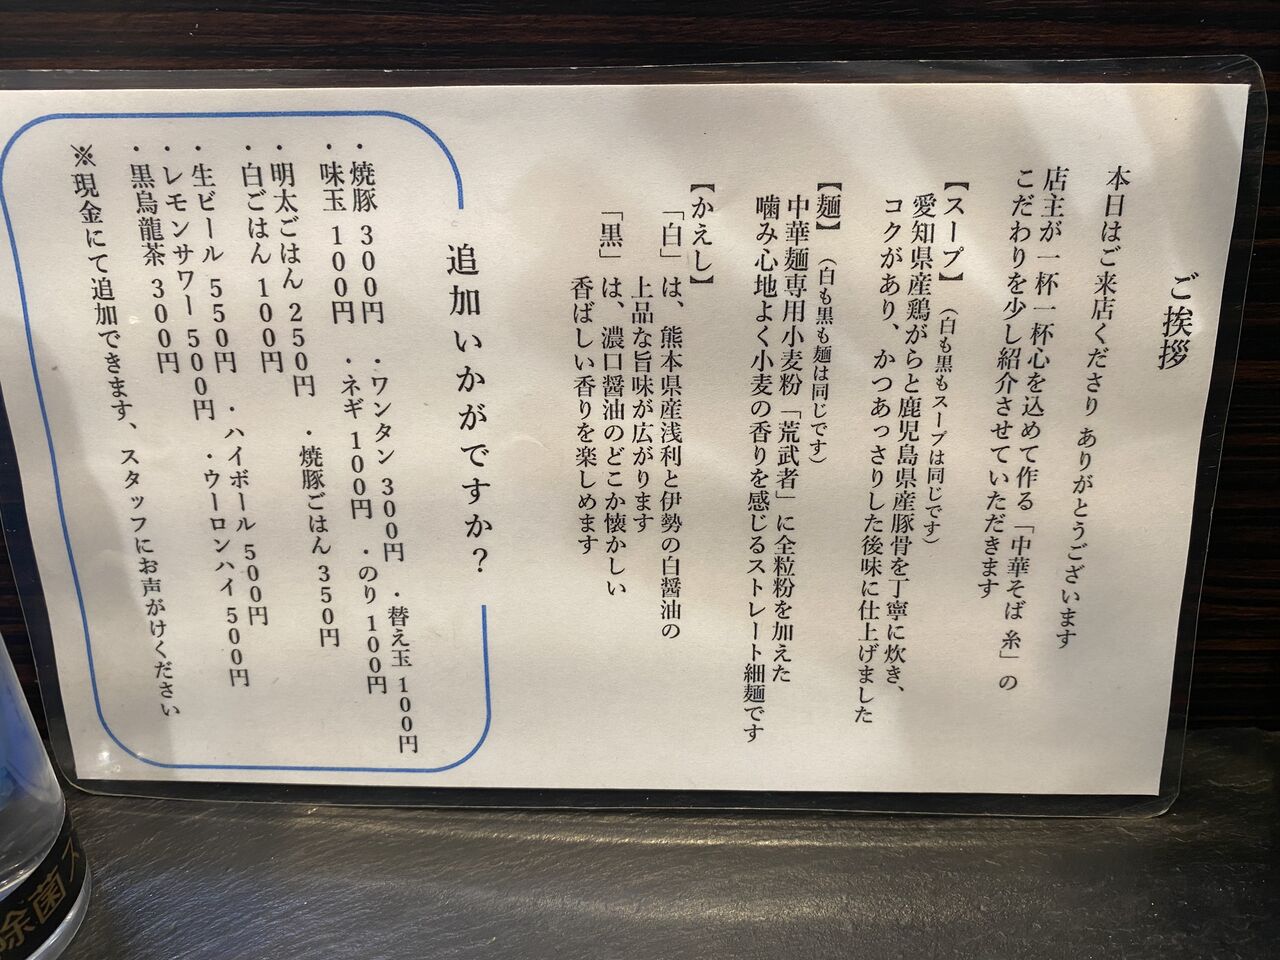 ご挨拶
本日はご来店くださり ありがとうございます
店主が一杯一杯心を込めて作る「中華そば 糸」の
こだわりを少し紹介させていただきます
【スープ】（白も黒もスープは同じです）
愛知県産鶏がらと鹿児島県産豚骨を丁寧に炊き、
コクがあり、かつあっさりした後味に仕上げました
【麺】（白も黒も麺は同じです）
中華麺専用小麦粉「荒武者」に全粒粉を加えた
噛み心地よく小麦の香りを感じるストレート細麺です
【かえし】
「白」は、熊本県産浅利と伊勢の白醤油の
上品な旨味が広がります
「黒」は、濃口醤油のどこか懐かしい
香ばしい香りを楽しめます
追加いかがですか？
・焼豚 300円 ・ワンタン 300円 ・替え玉 100円
・味玉 100円 ・ネギ 100円 ・のり 100円
・明太ごはん 250円 ・焼豚ごはん 350円
・白ごはん 100円
・生ビール 550円 ・ハイボール 500円
・レモンサワー 500円 ・ウーロンハイ 500円
・黒烏龍茶 300円
※現金にて追加できます、スタッフにお声がけください
除菌ス